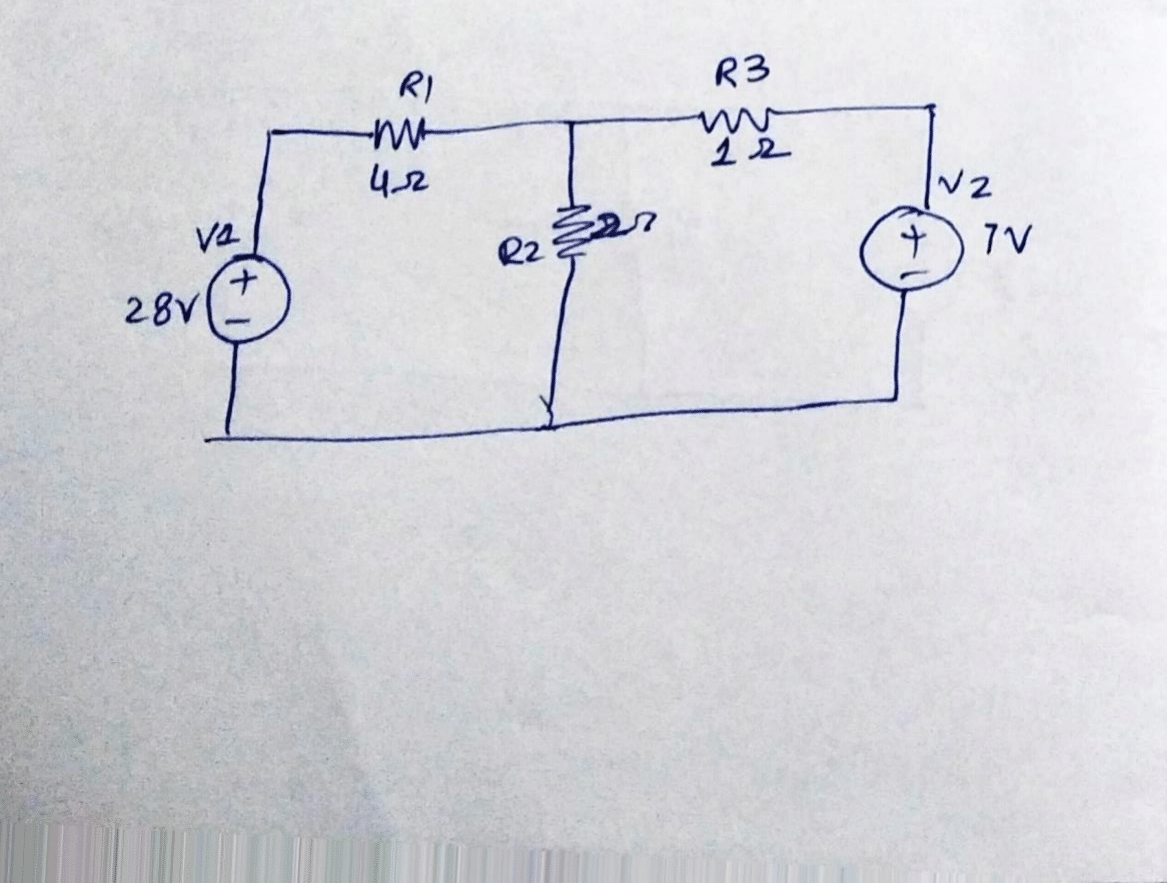 R1
4Ω
R3
1Ω
V1
28V
+
−
R2
2Ω
V2
7V
+
−